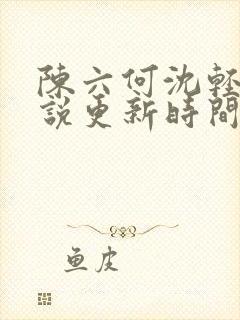 陳六何沈輕
說更新時間
鱼皮